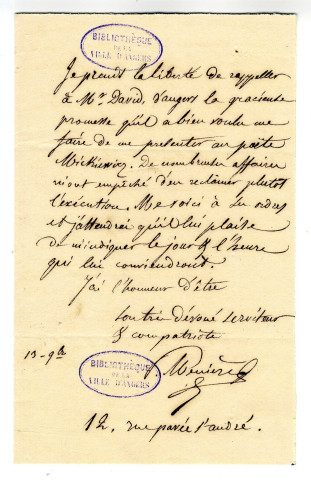 BIBLIOTHÈQUE
DE LA
VILLE D'ANGERS
Je prends la liberté de rappeller
à Mr David d'angers la gracieuse
promesse qu'il a bien voulu me
faire de me presenter au poëte
Mickiewicz. De nombreuses affaires
m'ont empêché d'en réclamer plutot
l'éxécution. Me voici à ses ordres
et j'attendrai qu'il lui plaise
de m'indiquer le jour & l'heure
qui lui conviendront.
J'ai l'honneur d'être
son très dévoué serviteur
& compatriote
13 - 9bre
BIBLIOTHÈQUE
DE LA
VILLE D'ANGERS
P. Menière
12, rue pavée St andré.